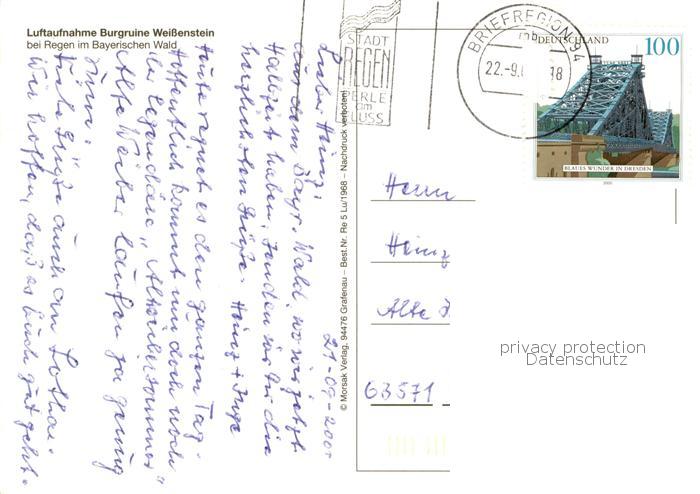 Luftaufnahme Burgruine Weißenstein
bei Regen im Bayerischen Wald
21-09-200
Lieber Heinz,
aus dem Bayr. Wald, wo wir jetzt
Halbzeit haben, senden wir Dir die
herzlichsten Grüße. Heinz + Inge
Heute regnet es den ganzen Tag.
Hoffentlich kommt nun doch noch
der legendäre "Altweibersommer"
Alte Weiber laufen ja genug
rum.
Viele Grüße auch an Lothar.
Wir hoffen, daß es Euch gut geht.
© Morsak Verlag, 94476 Grafenau – Best.Nr. Re 5 Lu/1968 – Nachdruck verboten!
STADT
REGEN
PERLE
am
FLUSS
BRIEFREGION 94
mb
22.-9.
18
DEUTSCHLAND
100
BLAUES WUNDER IN DRESDEN
2000
Herrn
Heinz
Alte
63571
privacy protection
Datenschutz